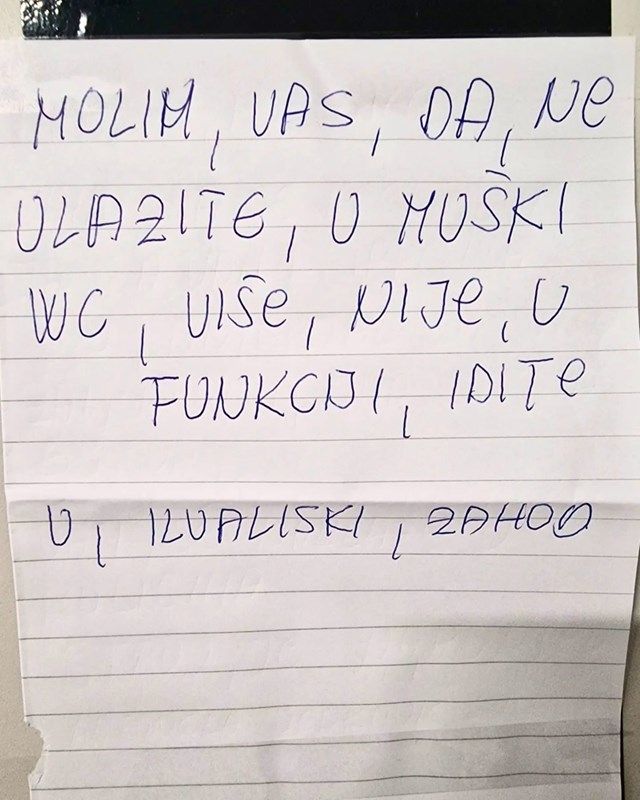 MOLIM, VAS, DA, Ne
ULAZITE, U MUŠKI
WC, VIŠe, NIJe, U
FUNKCIJI, IDITe
U, ILVALISKI, ZAHOD